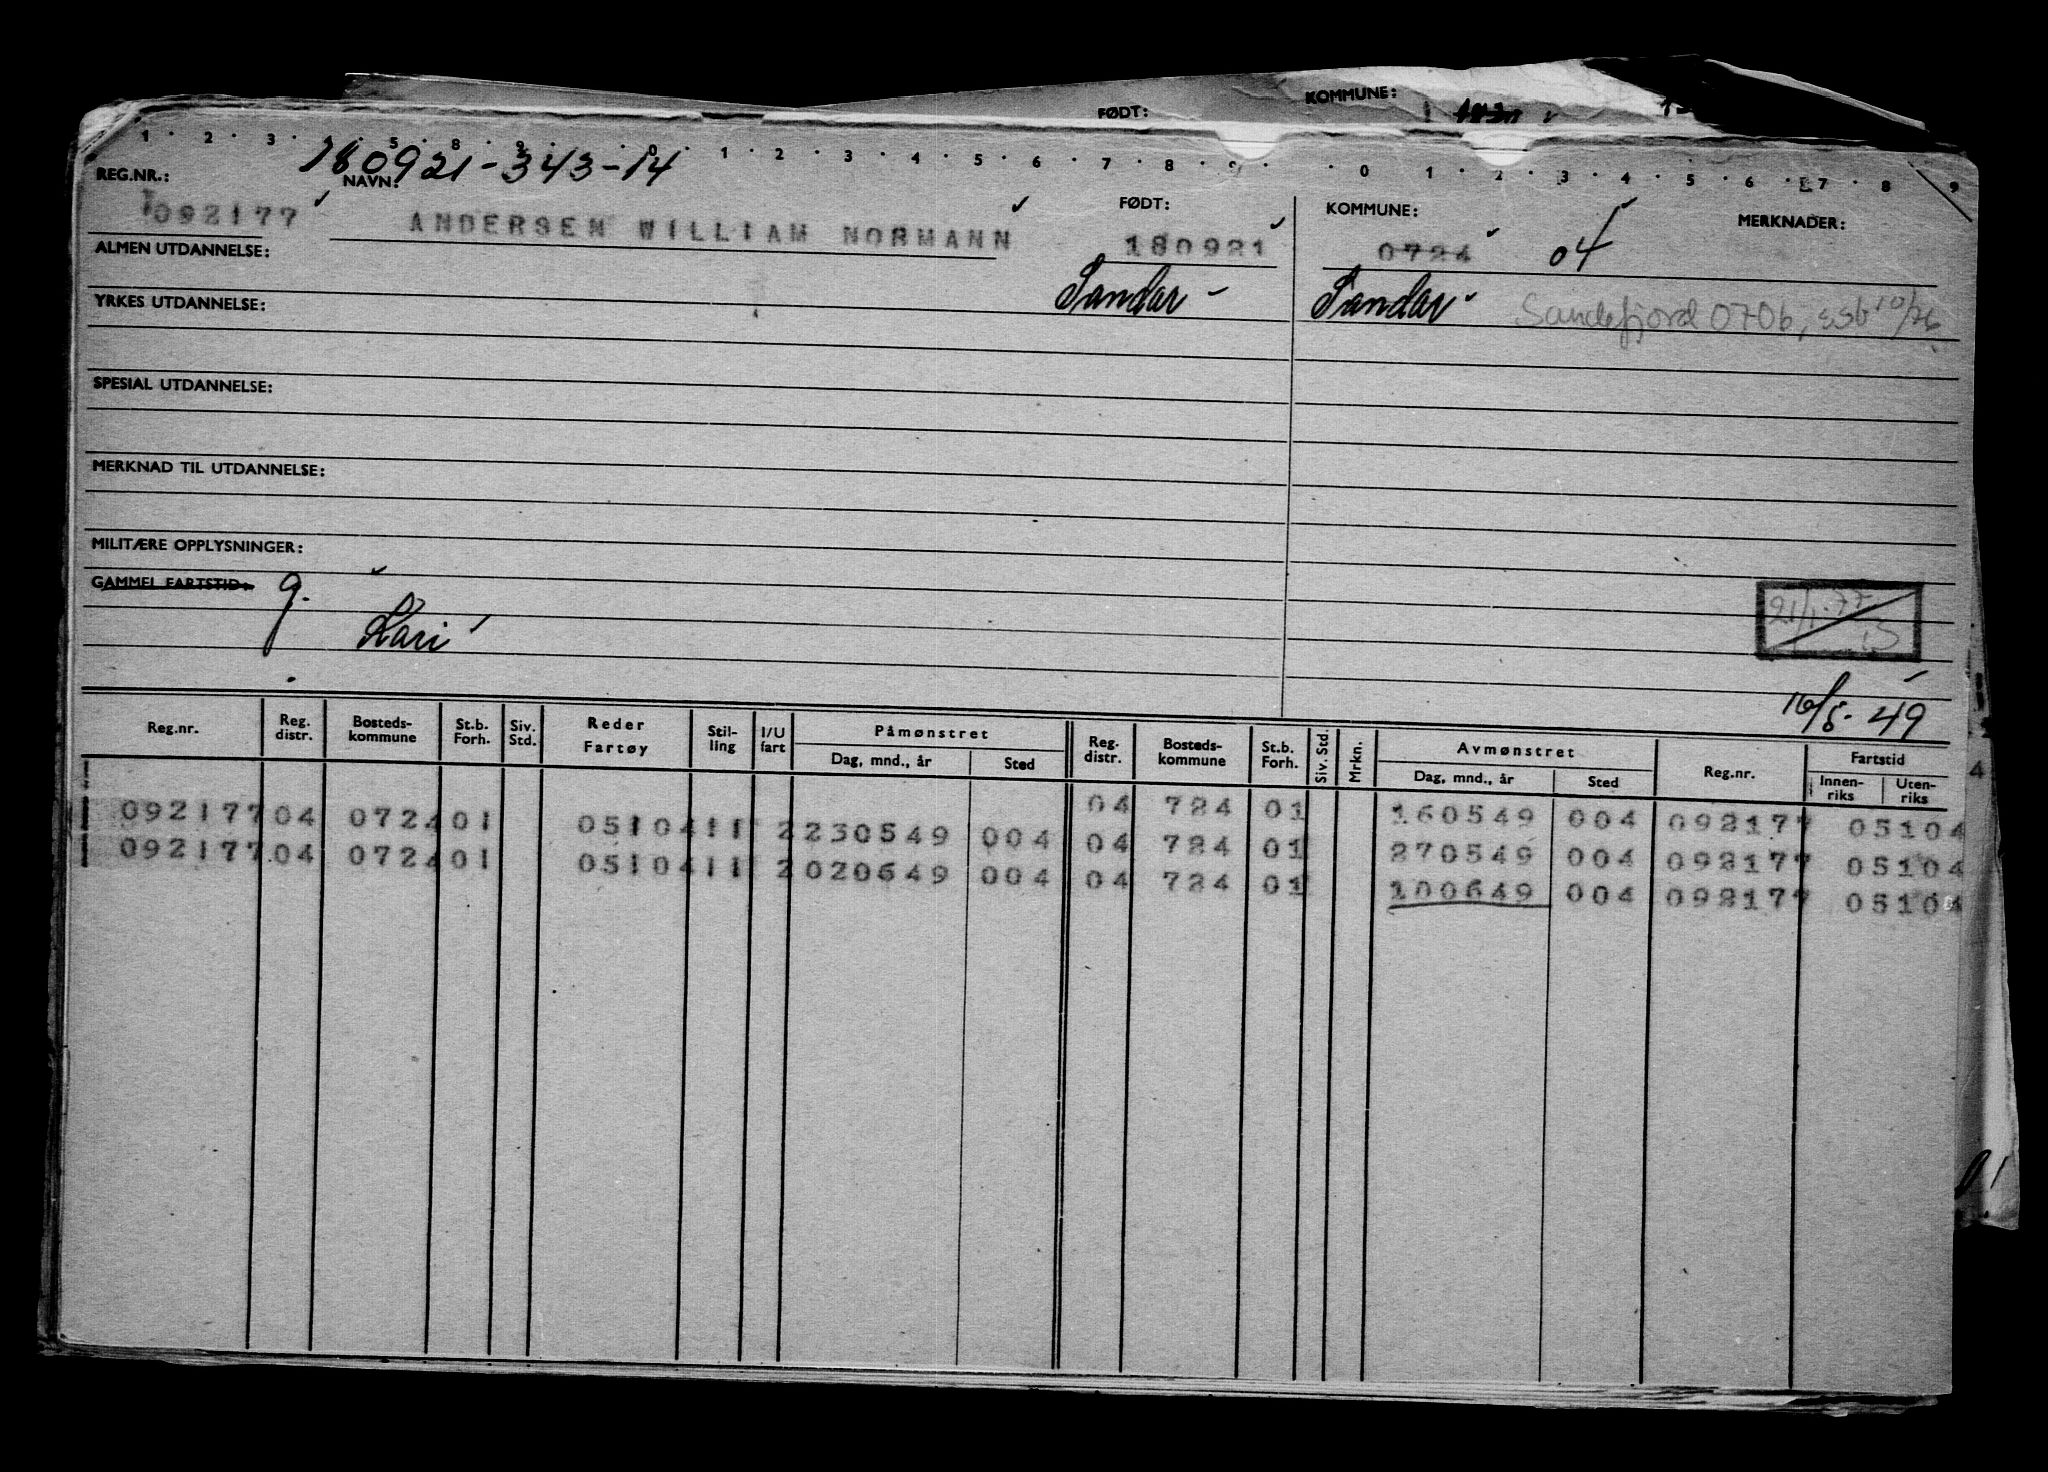 FØDT: KOMMUNE:
1 2 3 5 8 9 0 1 2 3 4 5 6 7 8 9 0 1 2 3 4 5 6 7 8 9
180921-343-14
REG.NR.: NAVN: FØDT: KOMMUNE: MERKNADER:
092177 ANDERSEN WILLIAM NORMANN 180921 0724 04
ALMEN UTDANNELSE:
Sandar Sandar Sandefjord 0706, ssb 10/76
YRKES UTDANNELSE:
SPESIAL UTDANNELSE:
MERKNAD TIL UTDANNELSE:
MILITÆRE OPPLYSNINGER:
GAMMEL FARTSTID: g.
21/1-77
Kari
16/5-49
Reg.nr. Reg. distr. Bosteds-kommune St.b. Forh. Siv. Std. Reder Fartøy Stil-ling I/U fart Påmønstret Dag, mnd., år Sted Reg. distr. Bosteds-kommune St.b. Forh. Siv. Std. Mrkn. Avmønstret Dag, mnd., år Sted Reg.nr. Fartstid Innen-riks Uten-riks
04 724 01 160549 004 092177 05104
092177 04 0724 01 05104 11 2 230549 004 04 724 01 270549 004 092177 05104
092177 04 0724 01 05104 11 2 020649 004 04 724 01 100649 004 092177 05104
4
01